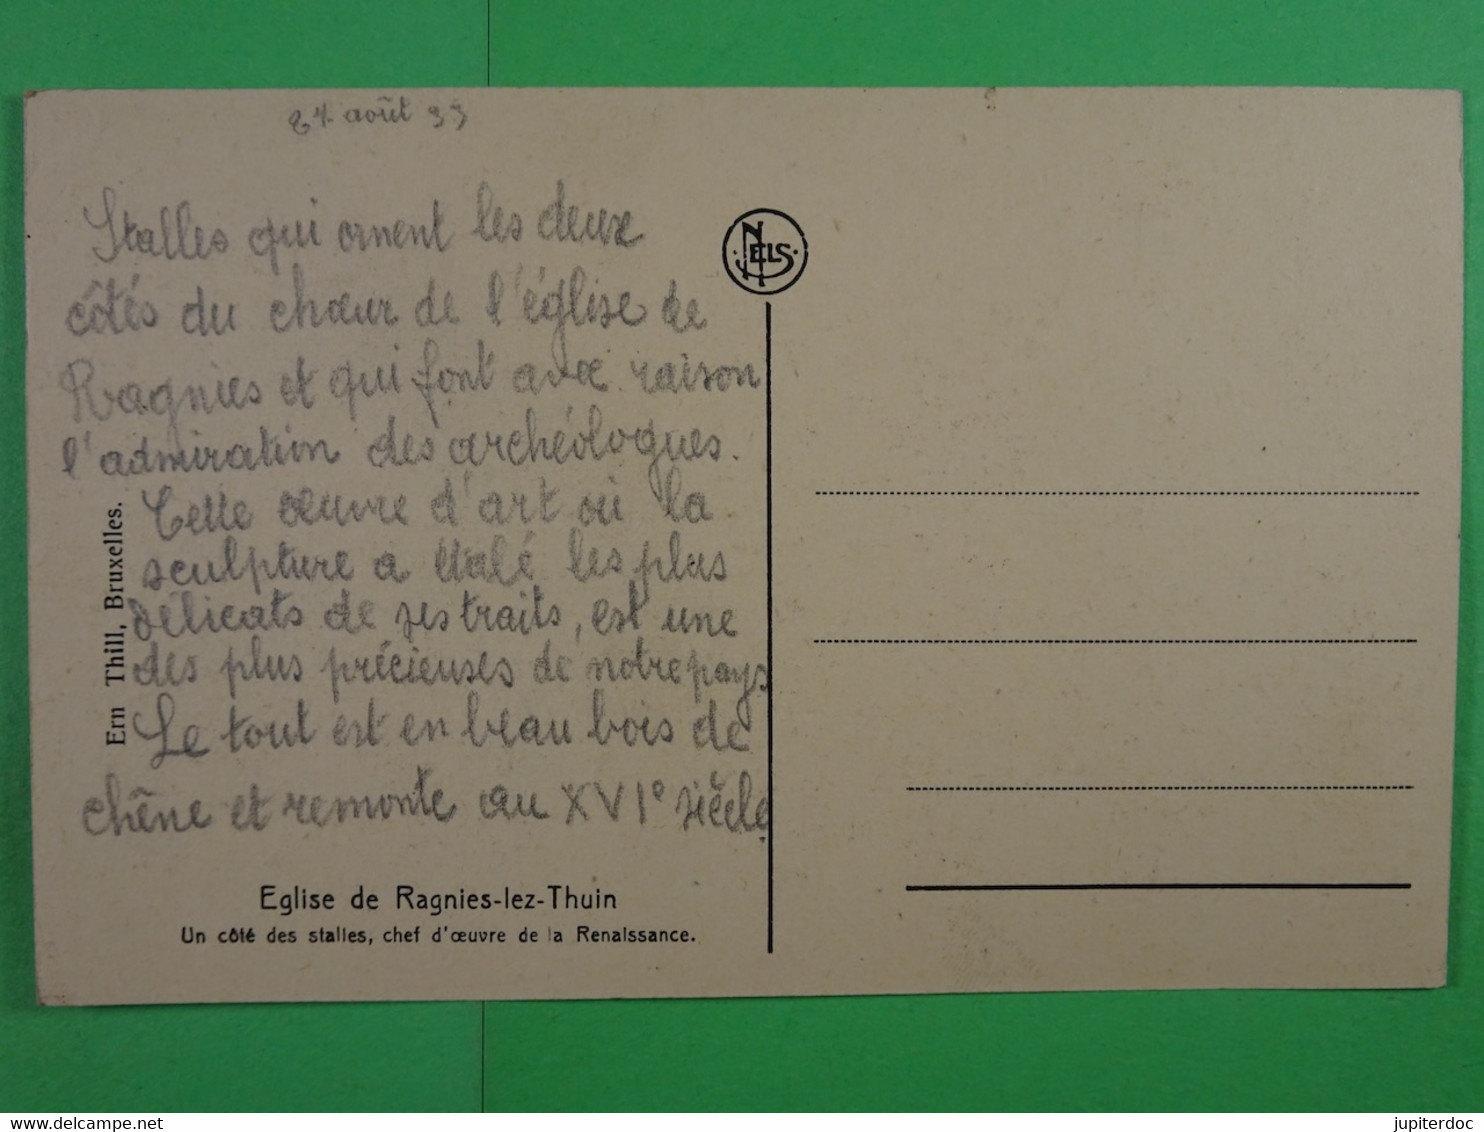 24 août 33
Stalles qui ornent les deux
côtés du chœur de l'église de
Ragnies et qui font avec raison
l'admiration des archéologues.
Cette œuvre d'art où la
sculpture a étalé les plus
délicats de ses traits, est une
des plus précieuses de notre pays
Le tout est en beau bois de
chêne et remonte au XVI° siècle
Ern Thill, Bruxelles.
Eglise de Ragnies-lez-Thuin
Un côté des stalles, chef d'œuvre de la Renaissance.
NELS
jupiterdoc
delcampe.net